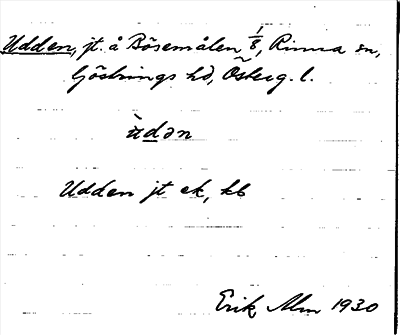 Udden, jt. å Bösemålen 1/8, Rinna sn,
Göstrings hd, Österg. l.
ùdən
Udden jt ek, kb
Erik Alm 1930